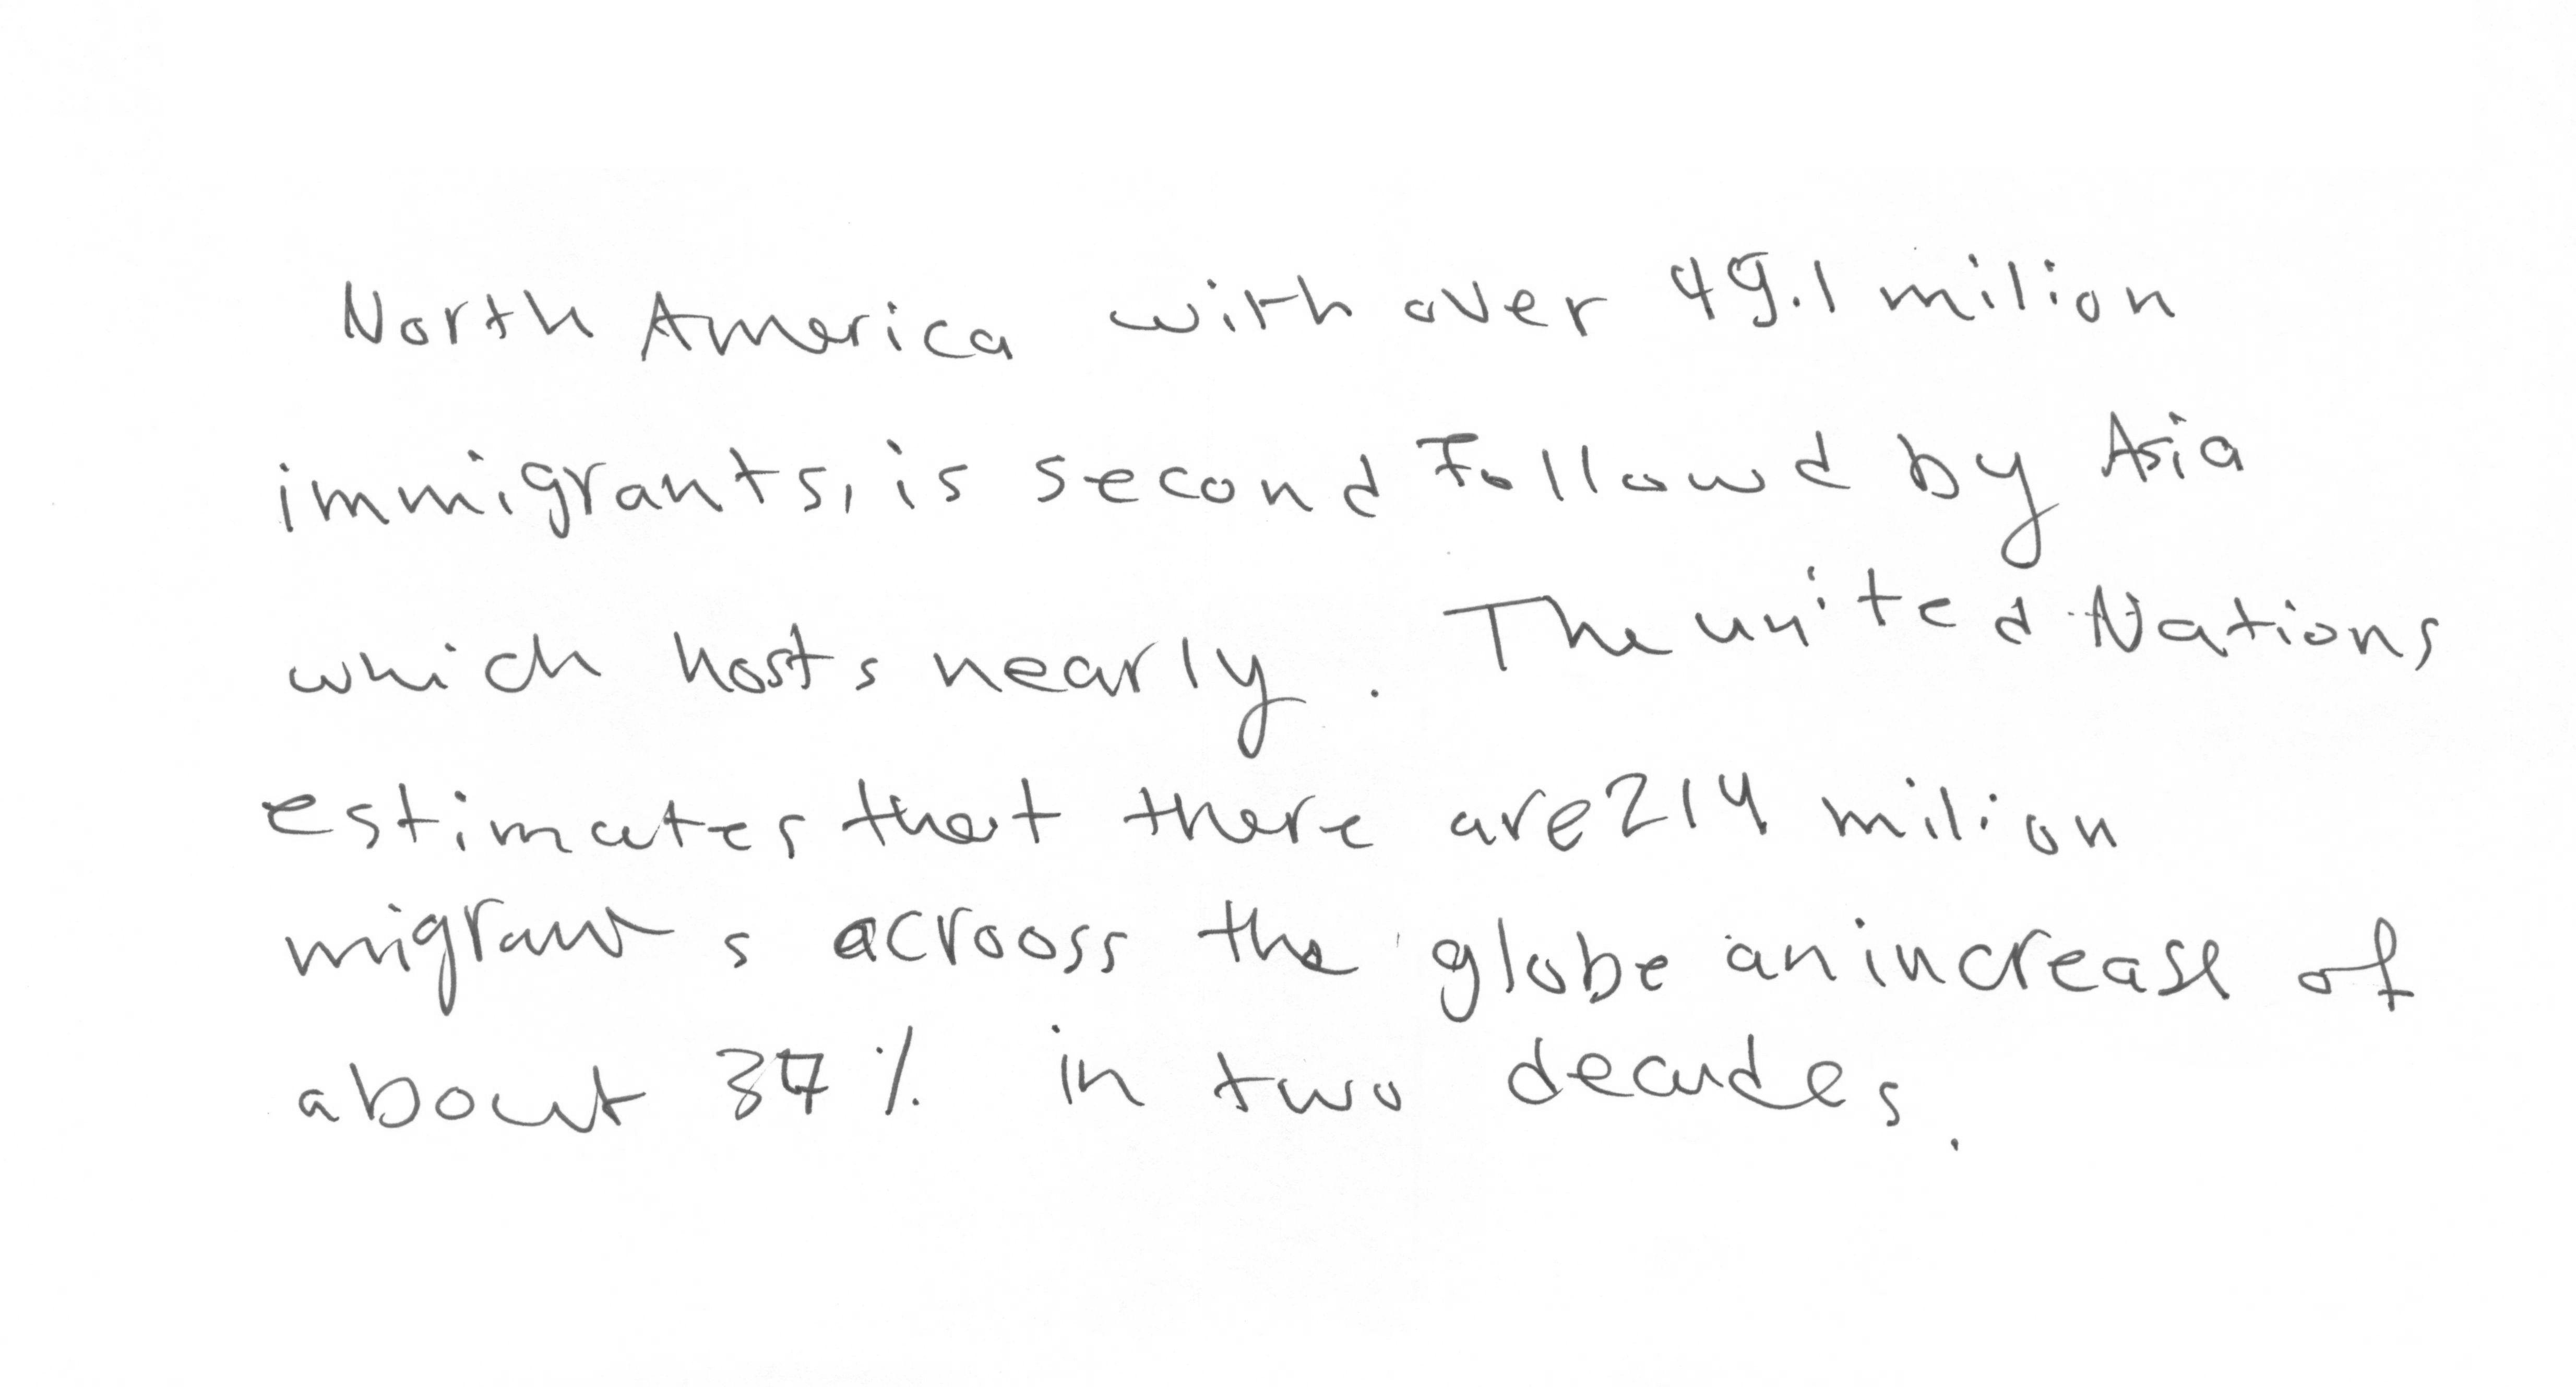 North America with over 49.1 milion
immigrants, is second Followd by Asia
which hosts nearly. The united Nations
estimates that there are 214 milion
migrants acrooss the globe an increase of
about 37% in two decades.